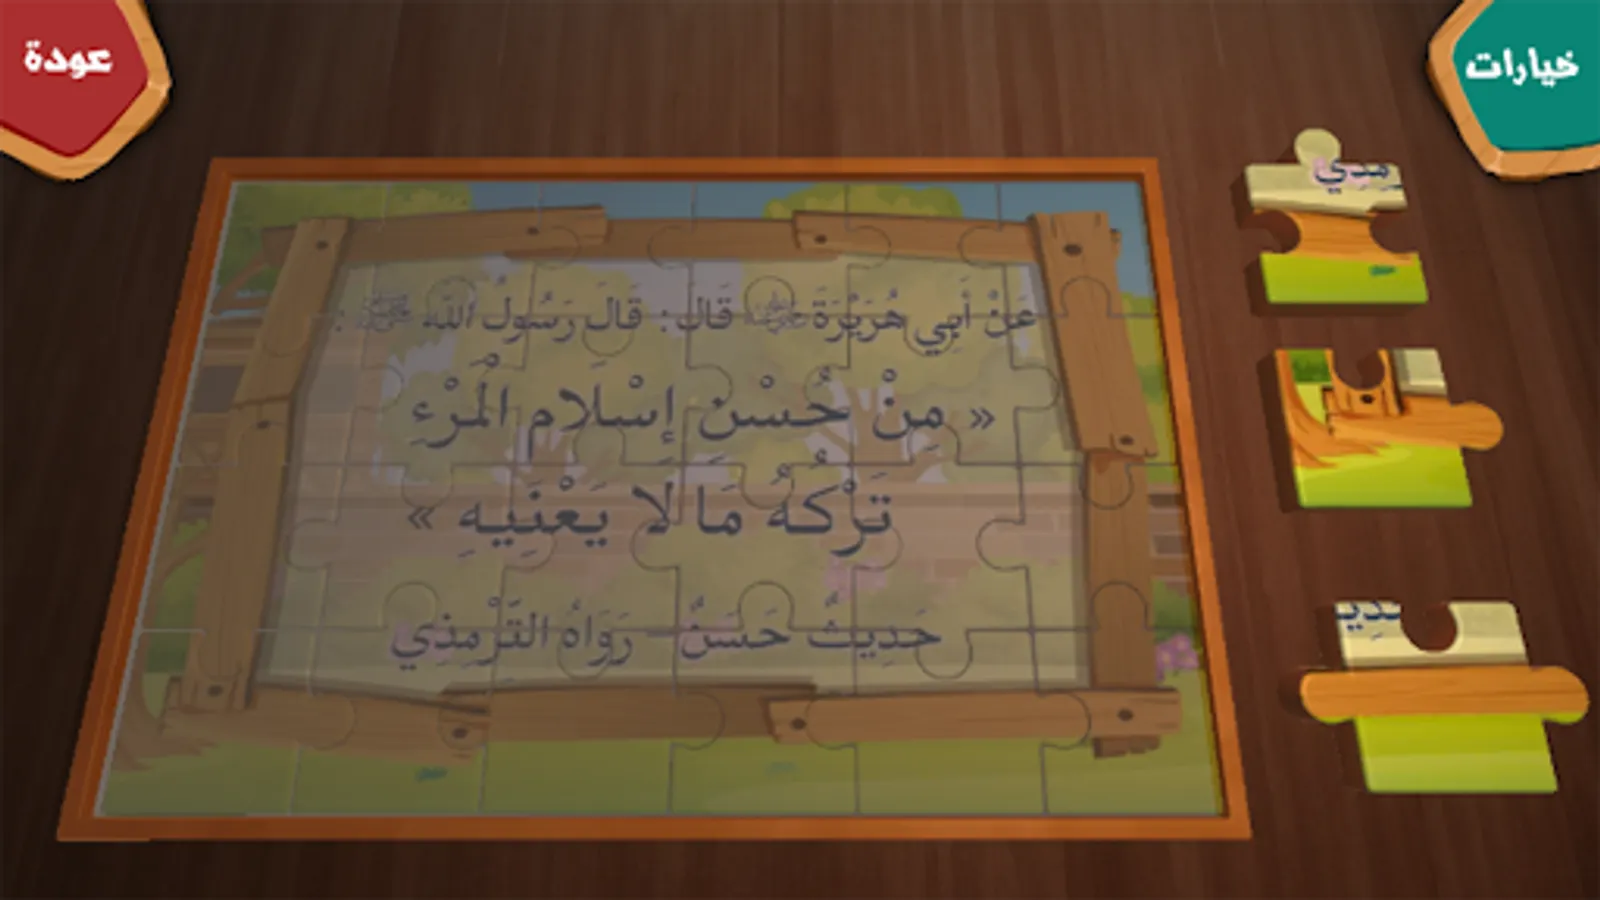 خيارات
عودة
عَنْ أَبِي هُرَيْرَةَ رضي الله عنه قَالَ: قَالَ رَسُولُ اللَّه ﷺ :
« مِنْ حُسْنِ إِسْلَامِ الْمَرْءِ
تَرْكُهُ مَا لَا يَعْنِيهِ »
حَدِيثٌ حَسَنٌ - رَوَاهُ التِّرْمِذِي
مِذِي